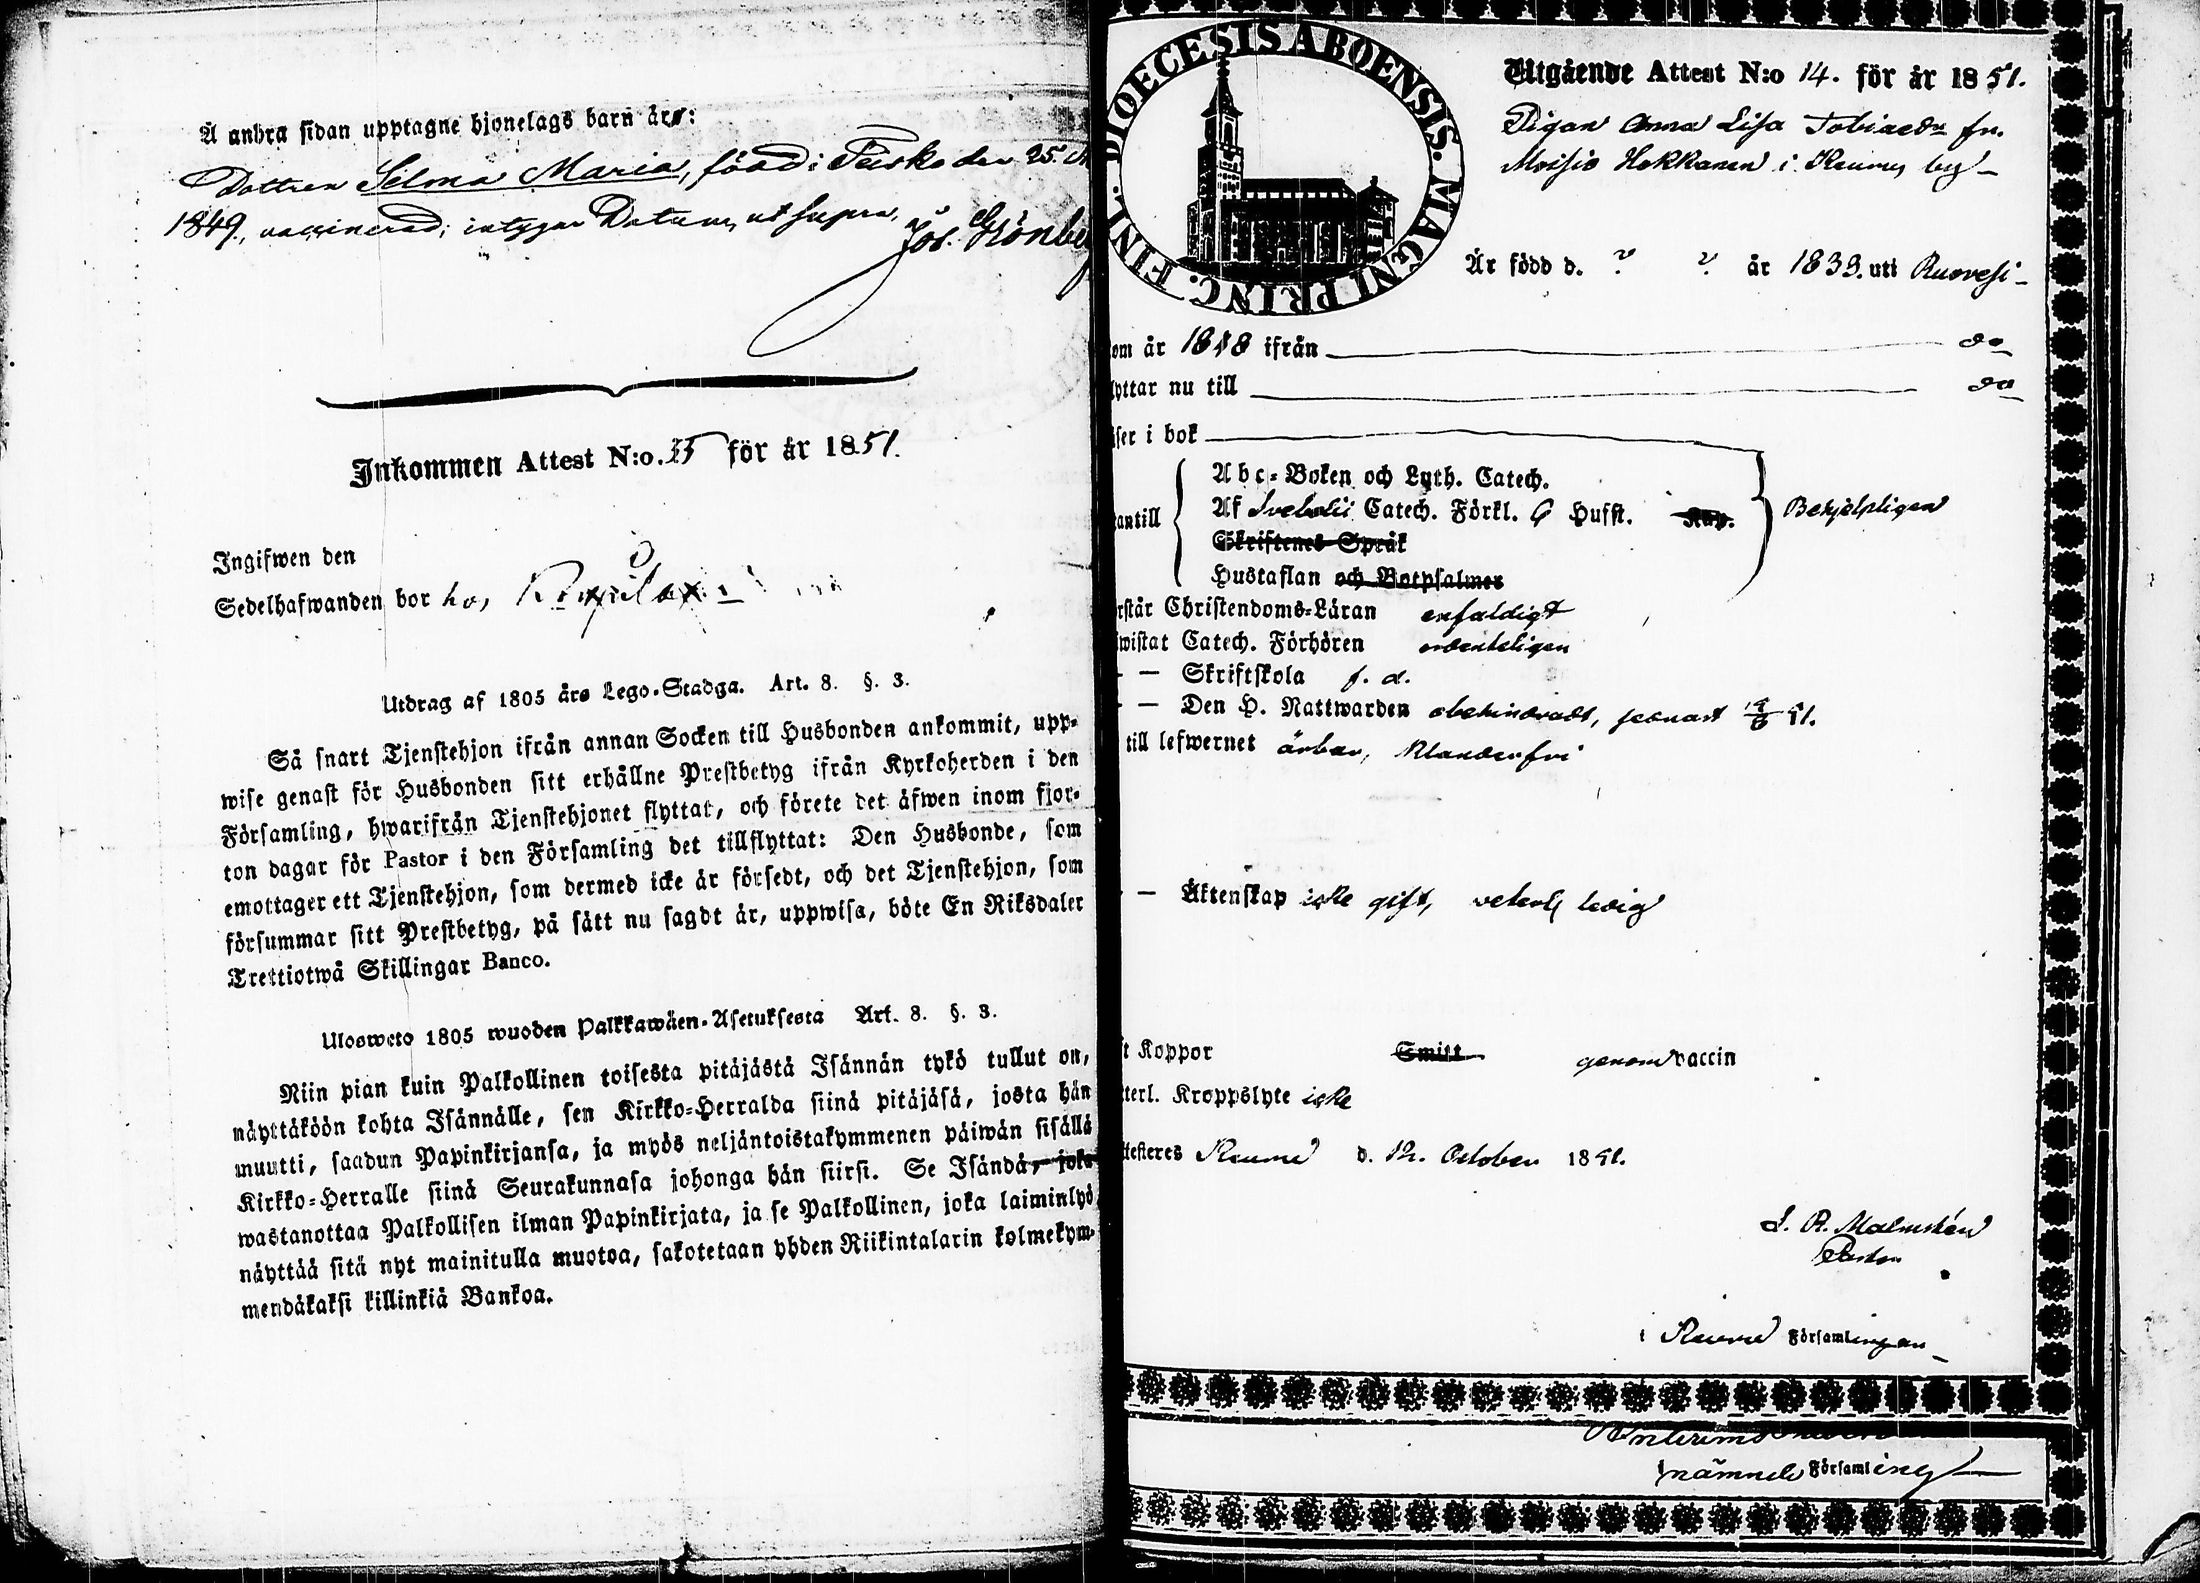 Å andra sidan upptagne hjonelags barn äro:
Dottren Selma Maria, född i Teisko den 25.
1849, vaccinerad; intygar Datum ut supra.
Joh. Grönb
Inkommen Attest N:o. 35 för år 1851.
Ingifwen den
Sedelhafwanden bor hos
Utdrag af 1805 års Lego-Stadga. Art. 8. §. 3.
Så snart Tjenstehjon ifrån annan Socken till Husbonden ankommit, upp-
wise genast för Husbonden sitt erhållne Prestbetyg ifrån Kyrkoherden i den
Församling, hwarifrån Tjenstehjonet flyttat, och förete det äfwen inom fjor-
ton dagar för Pastor i den Församling det tillflyttat: Den Husbonde, som
emottager ett Tjenstehjon, som dermed icke är försedt, och det Tjenstehjon, som
försummar sitt Prestbetyg, på sätt nu sagdt är, uppwisa, böte En Riksdaler
Trettiotwå Skillingar Banco.
Ulosweto 1805 wuoden Palkkawäen-Asetuksesta Art. 8. §. 3.
Niin pian kuin Palkollinen toisesta pitäjästä Isännän tykö tullut on,
näyttäköön kohta Isännälle, sen Kirkko-Herralda siinä pitäjäsä, josta hän
muutti, saadun Papinkirjansa, ja myös neljäntoistakymmenen päiwän sisällä
Kirkko-Herralle siinä Seurakunnasa johonga hän siirsi. Se Isändä, joka
wastanottaa Palkollisen ilman Papinkirjata, ja se Palkollinen, joka laiminlyö
näyttää sitä nyt mainitulla muotoa, sakotetaan yhden Riikintalarin kolmekym-
mendäkaksi killinkiä Bankoa.
DIOECESIS ABOENSIS. MAGNI PRINC. FINL.
Utgående Attest N:o 14. för år 1851.
Pigan Anna Lisa Tobiaedr fr.
Moisio Hokkanen i Keuru by
Är född d. ? ? år 1833. uti Ruovesi
om år 1848 ifrån do
lyttar nu till do
äser i bok
Abc-Boken och Luth. Catech.
antill Af Svebelii Catech. Förkl. Hufst. Behjelpligen
Skriftenes Språk
Hustaflan och Botpsalmer
rstår Christendoms-Läran enfaldigt
wistat Catech. Förhören ordenteligen
— Skriftskola f. d.
— Den H. Nattwarden obehindradt, senast 51.
till lefwernet ärbar, klanderfri
— Äktenskap icke gift, veterl. ledig
t Koppor Smitt genom vaccin
terl. Kroppslyte icke
ttesteres Keuru d. 12. October 1851.
Malmstén
Pastor
i Keuru Församlingen
nämnde Församling